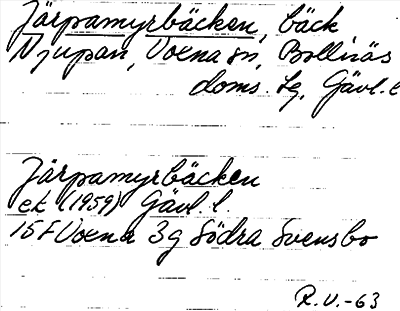 Järpamyrbäcken, bäck
Njupan, Voxna sn, Bollnäs
doms. sg, Gävl. l
Järpamyrbäcken
ek (1959) Gävl. l.
15F Voxna 3g Södra Svensbo
R.V.-63